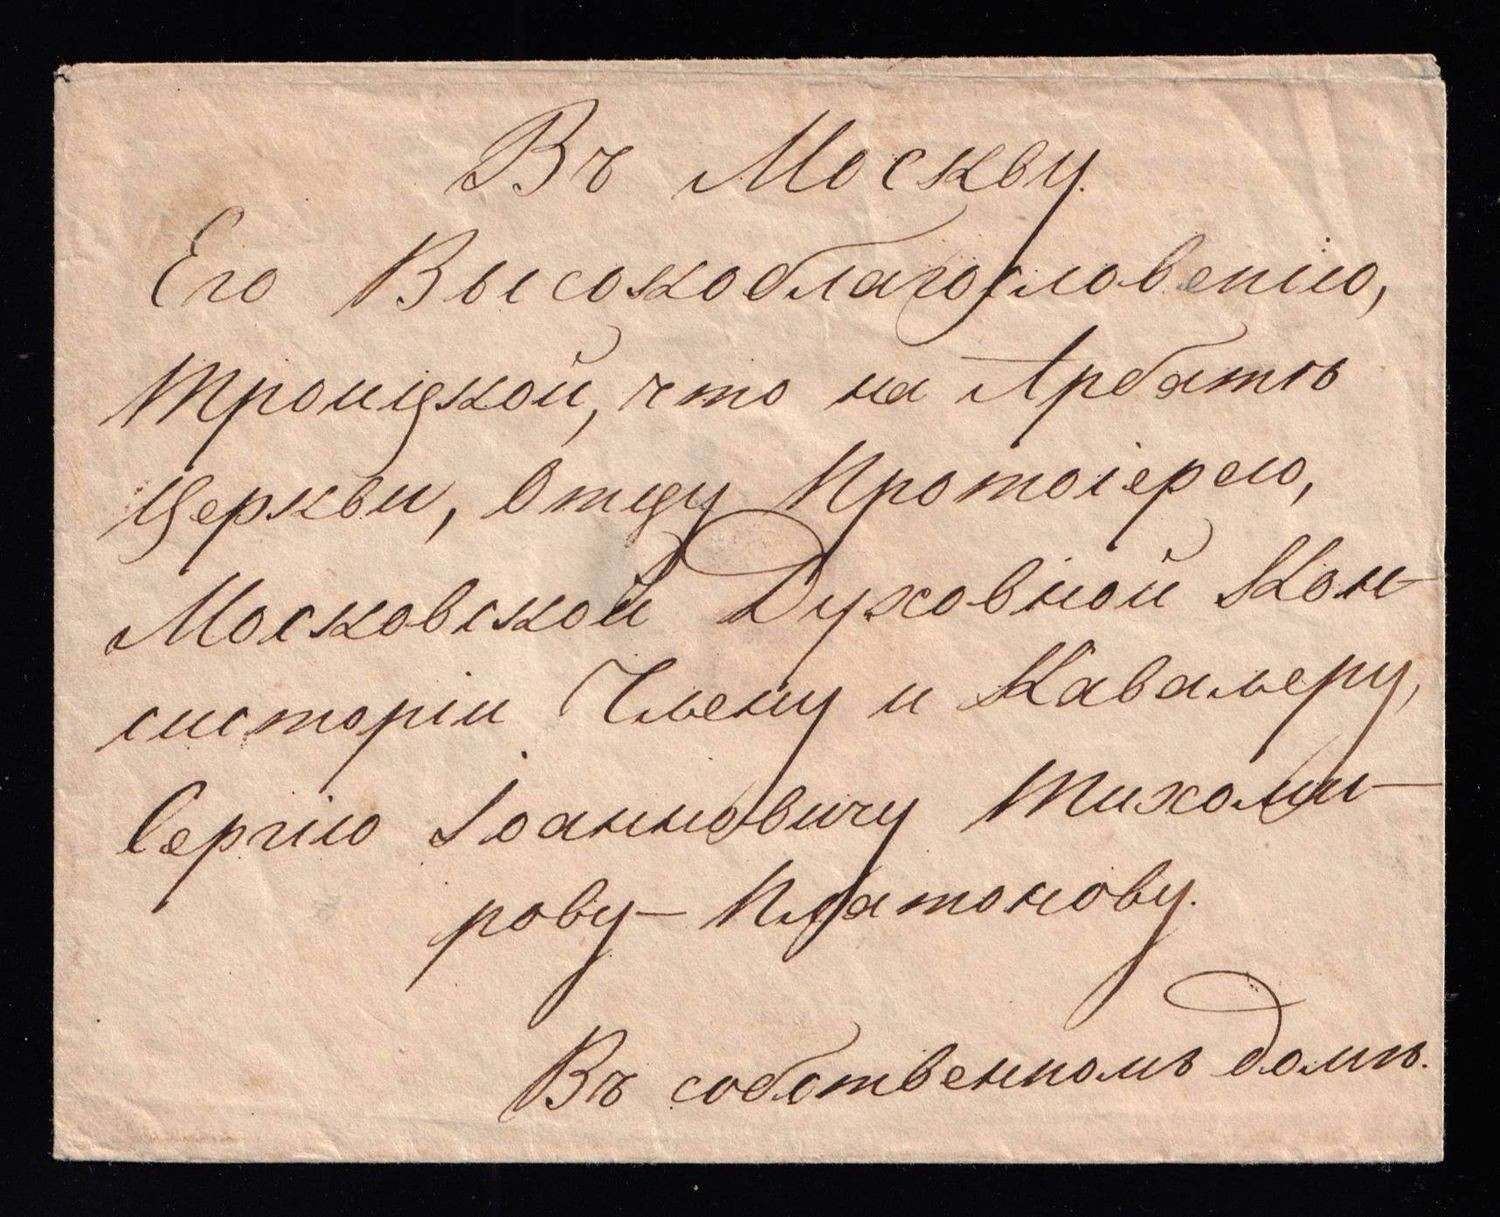 Въ Москву.
Его Высокоблагословенію,
Троицкой, что на Арбатѣ
Церкви, Отцу Протоіерею,
Московской Духовной Кон-
систоріи Члену и Кавалеру,
Сергію Іоанновичу Тихоми-
рову-Платонову.
Въ собственномъ домѣ.